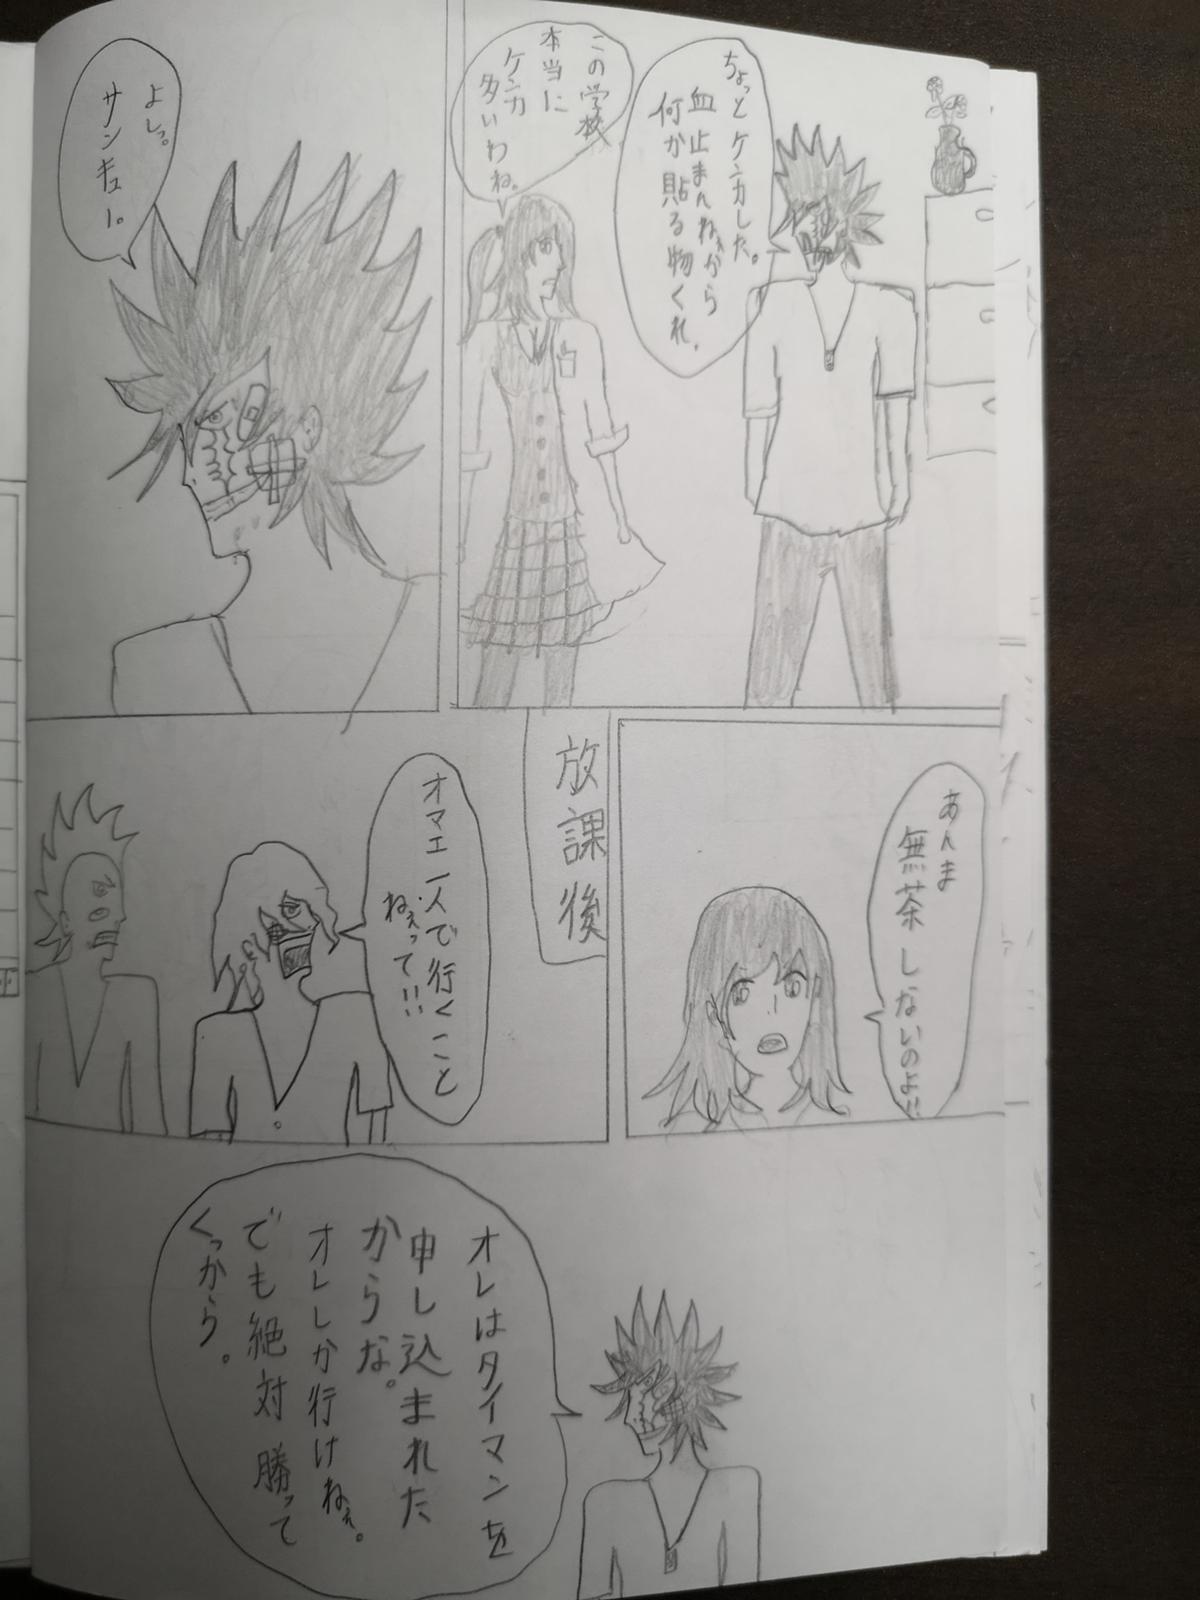 ちょっとケンカした。
血止まんねぇから
何か貼る物くれ。
この学校
本当に
ケンカ
多いわね。
よしっ。
サンキュー。
あんま
無茶しないのよ!!
放課後
オマエ一人で行くこと
ねぇって!!
オレはタイマンを
申し込まれた
からな。
オレしか行けねぇ。
でも絶対勝って
くっから。